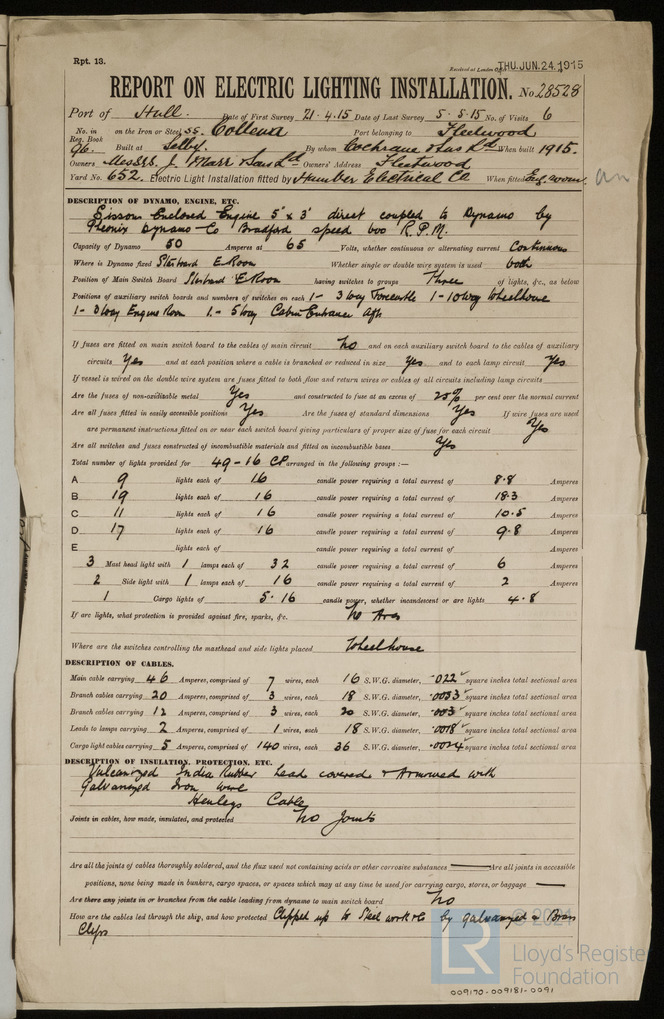 Rpt. 13.
Received at London Office THU. JUN. 24. 1915
REPORT ON ELECTRIC LIGHTING INSTALLATION. No. 28528
Port of Hull Date of First Survey 21.4.15 Date of Last Survey 5.5.15 No. of Visits 6
No. in Reg. Book 96. on the Iron or Steel SS. Port belonging to Fleetwood
Built at Selby By whom Cochrane & Sons Ld When built 1915.
Owners Messrs. J. Marr & Son Ld Owners' Address Fleetwood
Yard No. 652. Electric Light Installation fitted by Humber Electrical Co When fitted
DESCRIPTION OF DYNAMO, ENGINE, ETC.
Sissons Enclosed Engine 5" x 3" direct coupled to Dynamo by
Pheonix Dynamo Co Bradford speed 600 R.P.M.
Capacity of Dynamo 50 Amperes at 65 Volts, whether continuous or alternating current Continuous
Where is Dynamo fixed Starboard E Room Whether single or double wire system is used both
Position of Main Switch Board Starboard E Room having switches to groups Three of lights, &c., as below
Positions of auxiliary switch boards and numbers of switches on each 1 - 3 way Forecastle 1 - 10 way Wheelhouse
1 - 3 way Engine Room 1 - 5 way Cabin Entrance Aft
If fuses are fitted on main switch board to the cables of main circuit No and on each auxiliary switch board to the cables of auxiliary
circuits Yes and at each position where a cable is branched or reduced in size Yes and to each lamp circuit Yes
If vessel is wired on the double wire system are fuses fitted to both flow and return wires or cables of all circuits including lamp circuits
Are the fuses of non-oxidizable metal Yes and constructed to fuse at an excess of 25% per cent over the normal current
Are all fuses fitted in easily accessible positions Yes Are the fuses of standard dimensions Yes If wire fuses are used
are permanent instructions fitted on or near each switch board giving particulars of proper size of fuse for each circuit Yes
Are all switches and fuses constructed of incombustible materials and fitted on incombustible bases Yes
Total number of lights provided for 49 - 16 CP arranged in the following groups :—
A 9 lights each of 16 candle power requiring a total current of 8.8 Amperes
B 19 lights each of 16 candle power requiring a total current of 18.3 Amperes
C 11 lights each of 16 candle power requiring a total current of 10.5 Amperes
D 17 lights each of 16 candle power requiring a total current of 9.8 Amperes
E lights each of candle power requiring a total current of Amperes
3 Mast head light with 1 lamps each of 32 candle power requiring a total current of 6 Amperes
2 Side light with 1 lamps each of 16 candle power requiring a total current of 2 Amperes
1 Cargo lights of 5.16 candle power, whether incandescent or arc lights 4.8
If arc lights, what protection is provided against fire, sparks, &c. No Arcs
Where are the switches controlling the masthead and side lights placed Wheelhouse
DESCRIPTION OF CABLES.
Main cable carrying 46 Amperes, comprised of 7 wires, each 16 S.W.G. diameter, .022 square inches total sectional area
Branch cables carrying 20 Amperes, comprised of 3 wires, each 18 S.W.G. diameter, .0053 square inches total sectional area
Branch cables carrying 12 Amperes, comprised of 3 wires, each 20 S.W.G. diameter, .003 square inches total sectional area
Leads to lamps carrying 2 Amperes, comprised of 1 wires, each 18 S.W.G. diameter, .0018 square inches total sectional area
Cargo light cables carrying 5 Amperes, comprised of 140 wires, each 36 S.W.G. diameter, .0024 square inches total sectional area
DESCRIPTION OF INSULATION, PROTECTION, ETC.
Vulcanized India Rubber Lead covered & Armoured with
Galvanized Iron wire
Henleys Cable
Joints in cables, how made, insulated, and protected No Joints
Are all the joints of cables thoroughly soldered, and the flux used not containing acids or other corrosive substances — Are all joints in accessible
positions, none being made in bunkers, cargo spaces, or spaces which may at any time be used for carrying cargo, stores, or baggage —
Are there any joints in or branches from the cable leading from dynamo to main switch board No
How are the cables led through the ship, and how protected Clipped up to Steel work &c by galvanized & Brass
Clips
LR © 2021
Lloyd's Register
Foundation
009170-009181-0091